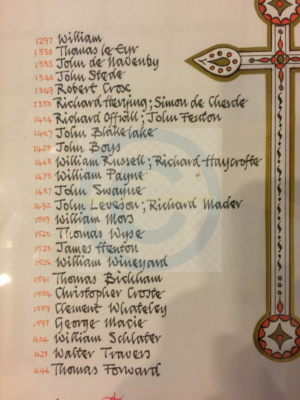 1297 William
1338 Thomas le Eyr
1335 John de Navenby
John Stede
1349 Robert Crose
1350 Richard Herying; Simon de Cheste
1424 Richard Offyll; John Fenton
1427 John Blakelake
1428 John Boys
William Russell; Richard Haycrofte
1475 William Payne
John Swayne
1492 John Leveson; Richard Mader
1509 William Mors
Thomas Wyse
1523 James Henton
1526 William Wineyard
Thomas Bickham
1554 Christopher Croste
1559 Clement Whateley
1597 George Macie
William Schlater
Walter Travers
1646 Thomas Forward